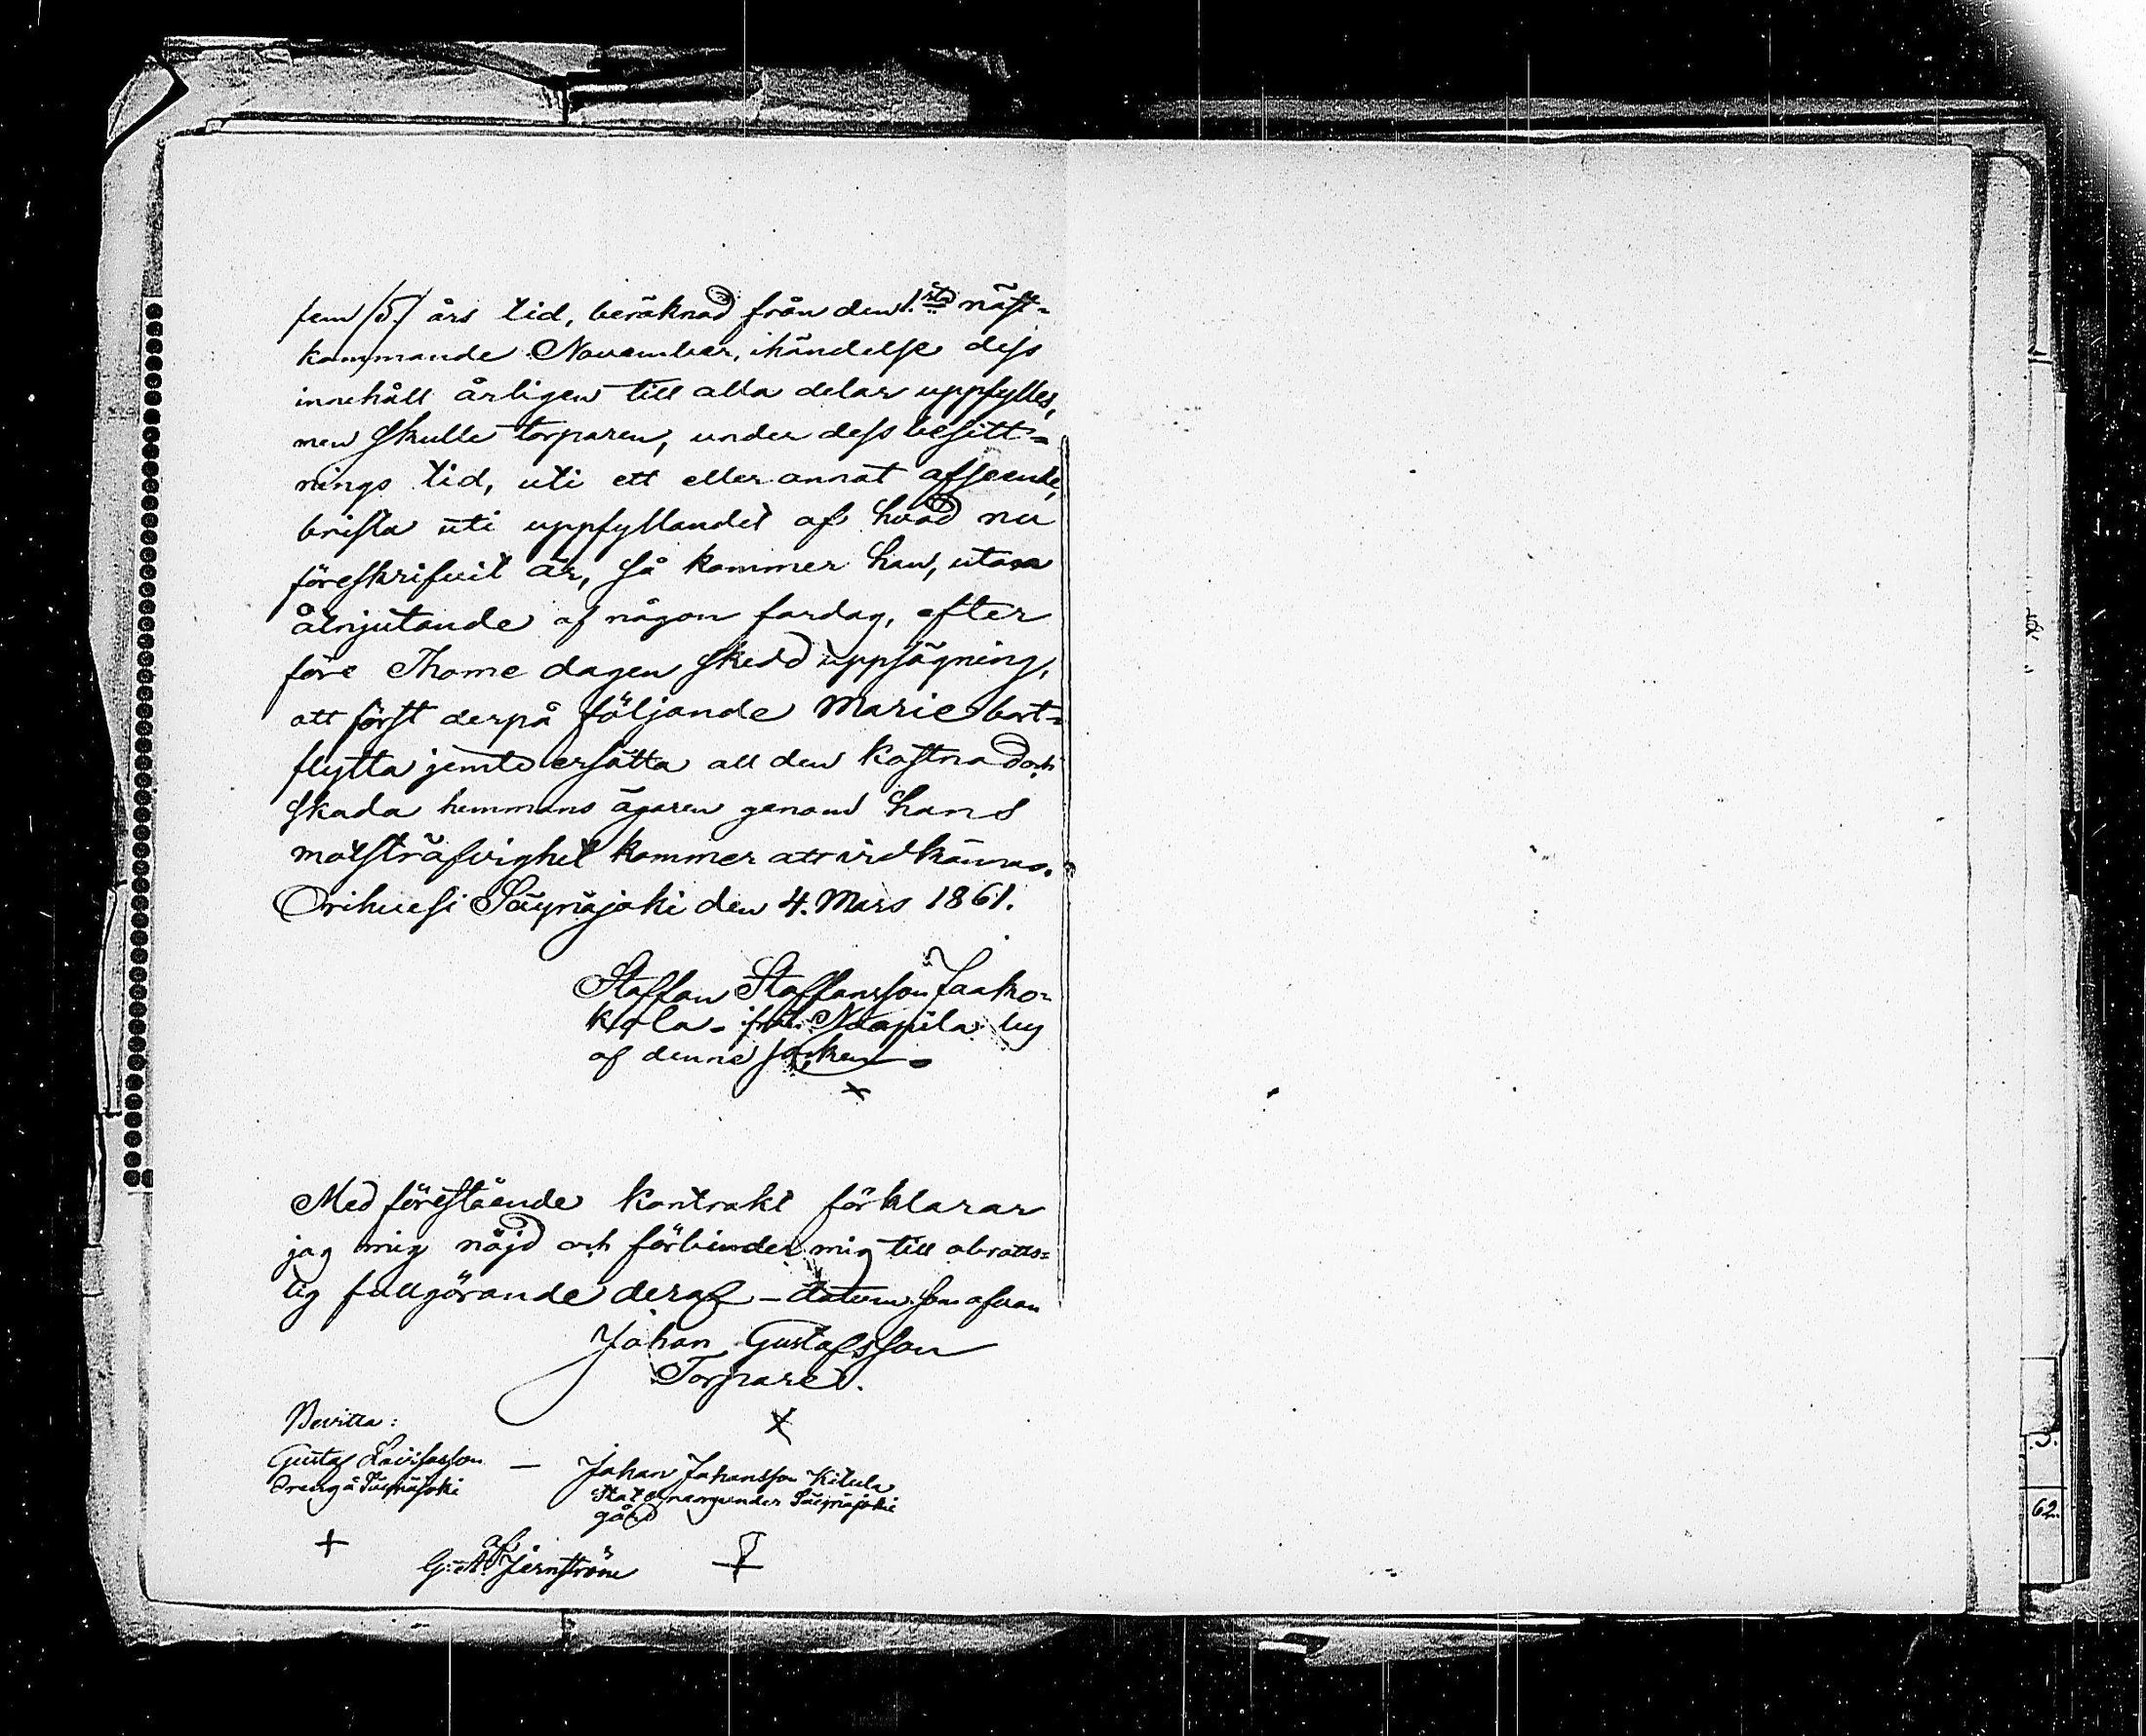 fem /5./ års tid, beräknad från den 1.sta näst-
kommande November, ihändelse dess
innehåll årligen till alla delar uppfylles,
men skulle torparen, under dess besitt-
nings tid, uti ett eller annat afseende,
brista uti uppfyllandet af hvad nu
föreskrifvit är, så kommer han, utan
åtnjutande af någon fardag, efter
före Thome dagen skedd uppsägning,
att först derpå följande Marie bort-
flytta jemte ersätta all den kostnad och
skada hemmans ägaren genom hans
motsträfvighet kommer att vidkännas.
Orihvesi Säynäjoki den 4. Mars 1861.
Staffan Staffansson Jaako-
kola - ifrån Naapila by
af denne socken -
x
Med förestående kontrakt förklarar
jag mig nöjd och förbinder mig till obrotts-
lig fullgörande deraf - datum som ofvan
Johan Gustafsson
Torpare.
x
Bevitta:
Gustaf — Johan Johansson Kitula
Dreng å Säynäjoki under Säynäjoki
gård
+
af
G: A: Jernström